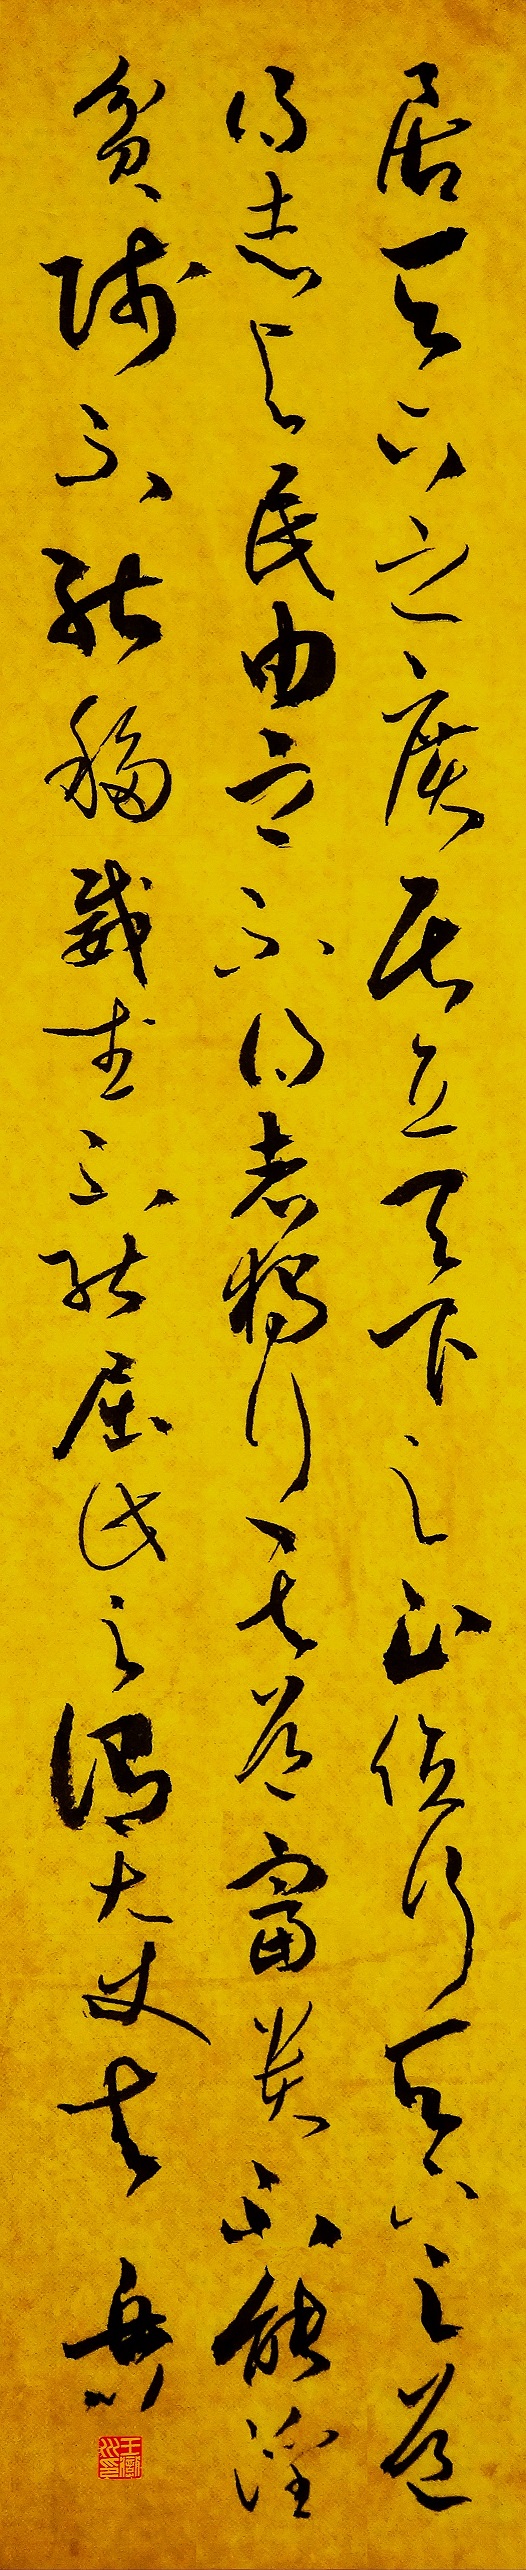 居天下之廣居立天下之正位行天下之道
得志与民由之不得志獨行其道富貴不能淫
貧賤不能移威武不能屈此之謂大丈夫